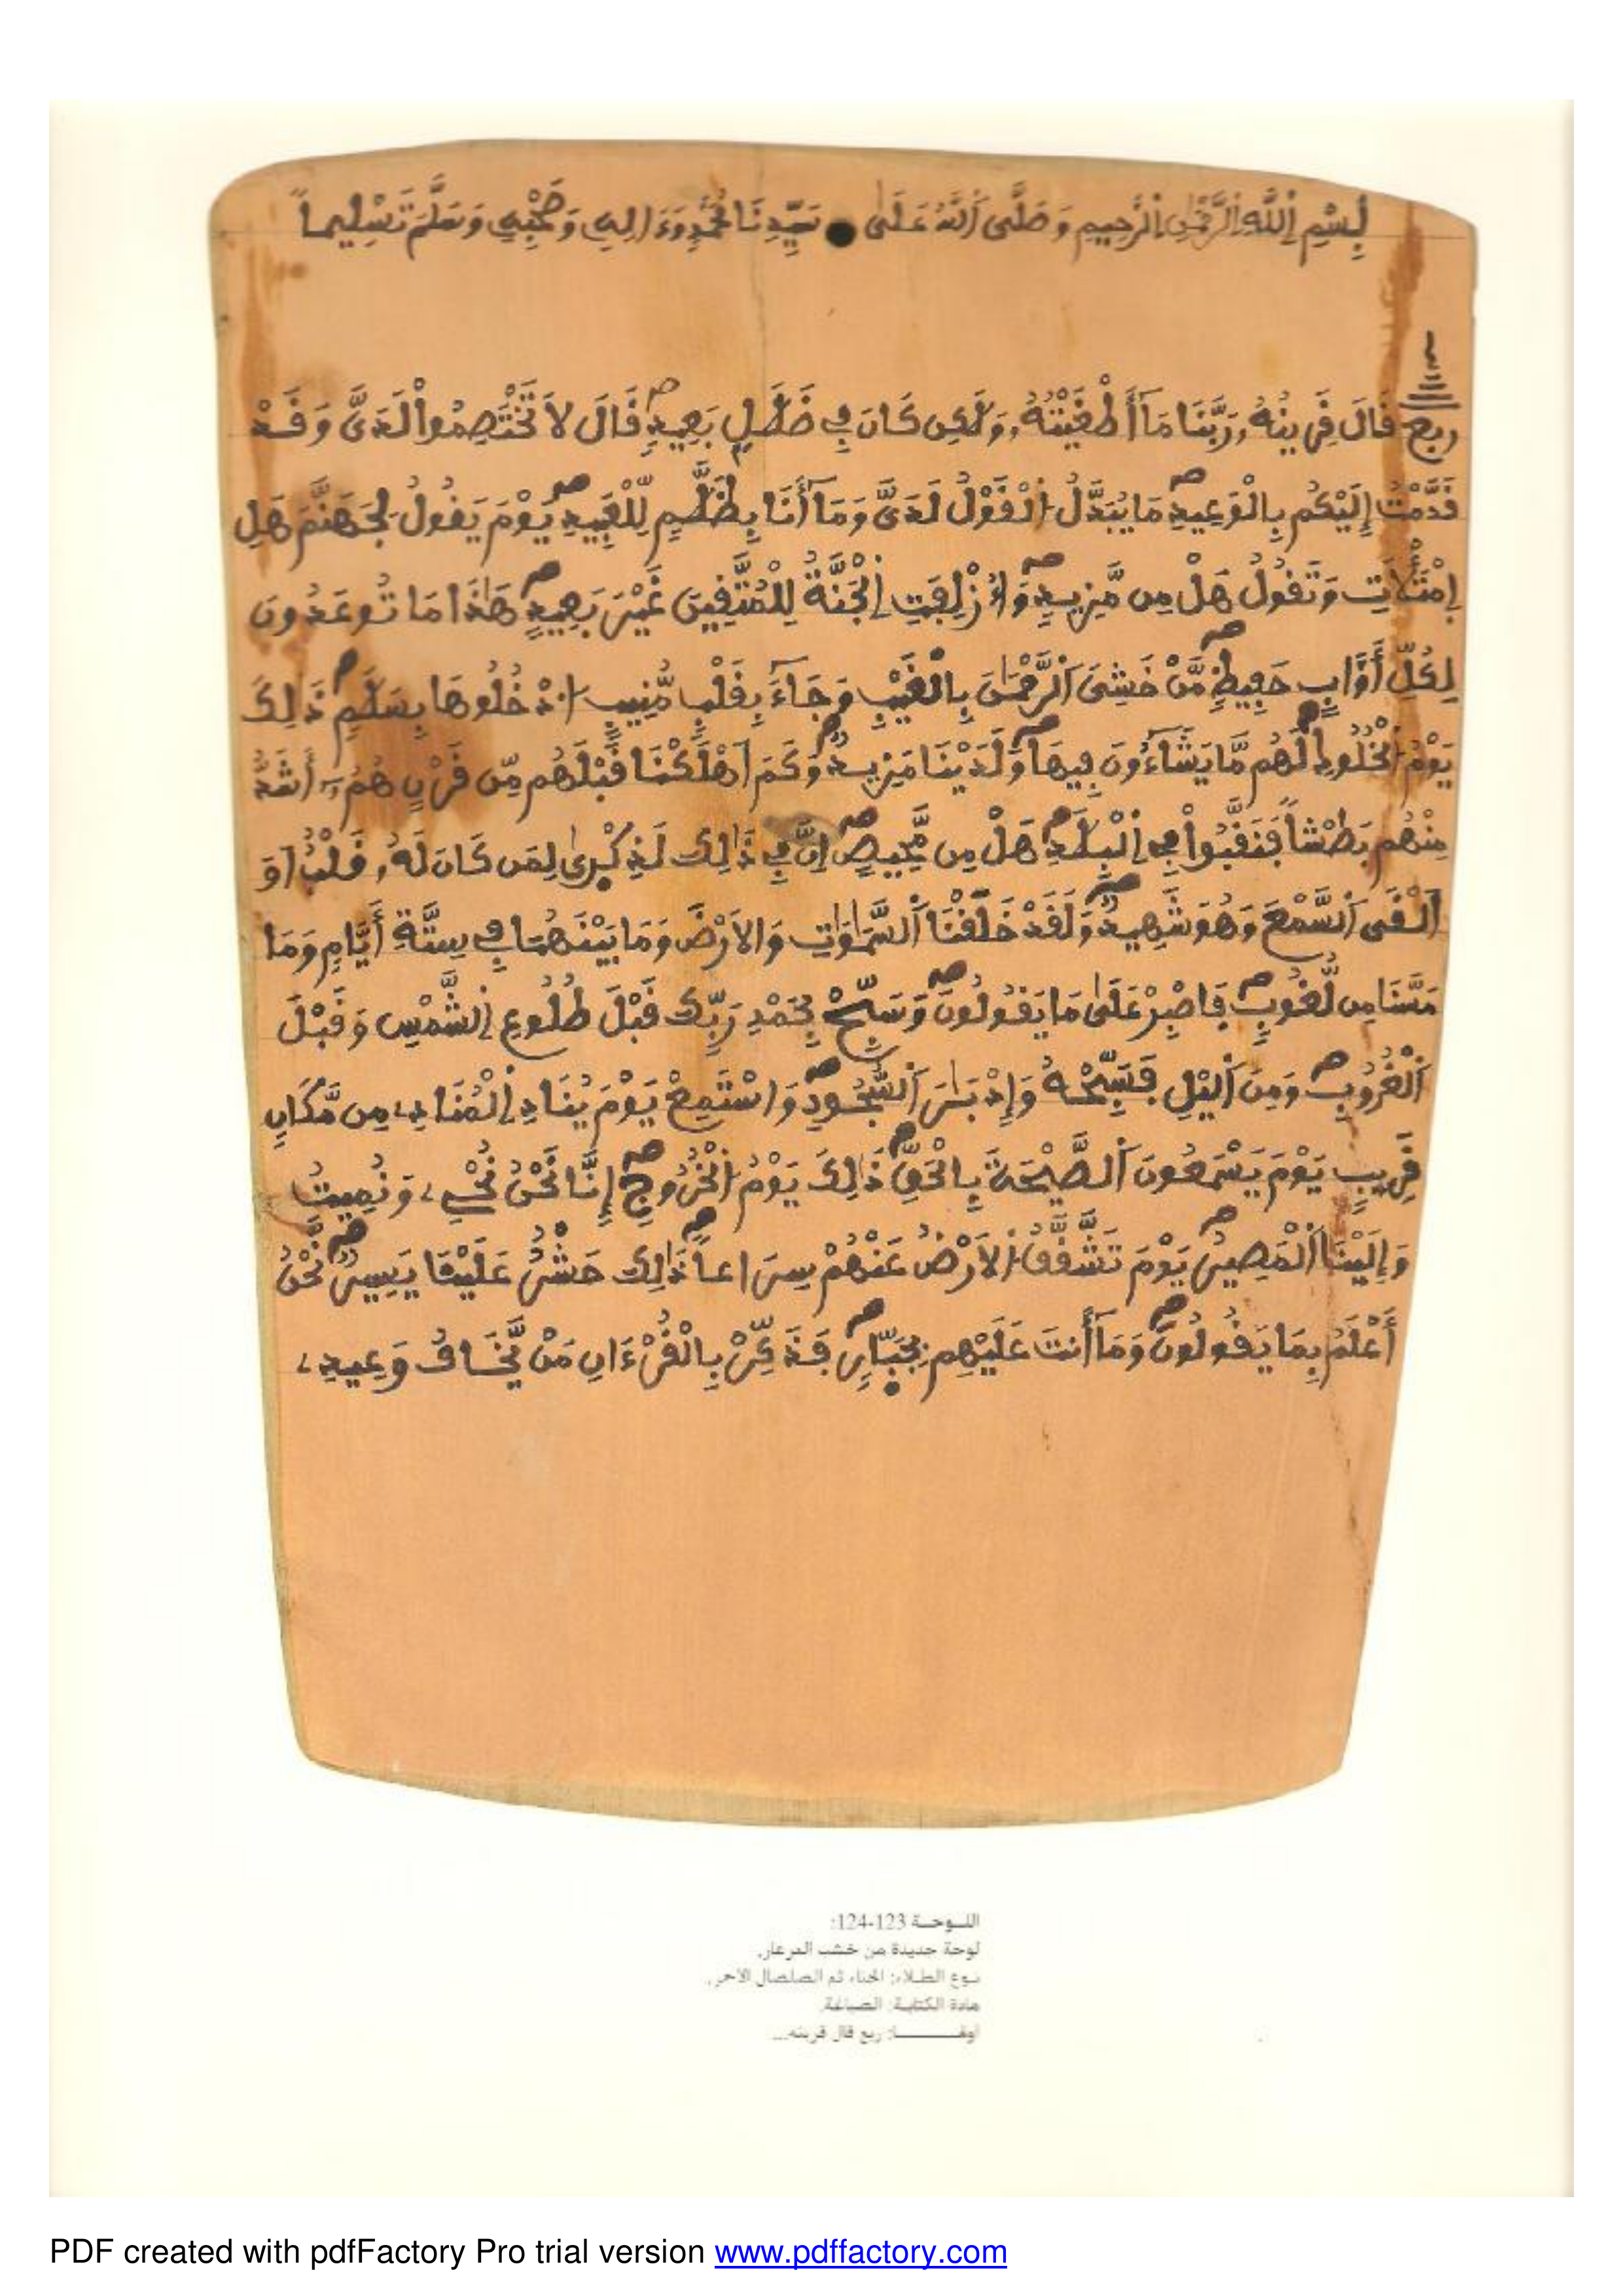 بِسْمِ اِللَّهِ اِلرَّحْمَٰنِ اِلرَّحِيمِ وَصَلَّى اَللَّهُ عَلَىٰ سَيِّدِنَا مُحَمَّدٍ وَءَالِهِ وَصَحْبِهِ وَسَلَّمَ تَسْلِيماً
ربع قَالَ قَرِينُهُۥ رَبَّنَا مَآ أَطْغَيْتُهُۥ وَلَٰكِن كَانَ فِي ضَلَٰلٍۭ بَعِيدٖ قَالَ لَا تَخْتَصِمُواْ لَدَيَّ وَقَدْ
قَدَّمْتُ إِلَيْكُم بِالْوَعِيدِ مَا يُبَدَّلُ اُلْقَوْلُ لَدَيَّ وَمَآ أَنَا بِظَلَّٰمٍ لِّلْعَبِيدِ يَوْمَ يَقُولُ لِجَهَنَّمَ هَلِ
اِمْتَلَأْتِ وَتَقُولُ هَلْ مِن مَّزِيدٍ وَأُزْلِفَتِ اِلْجَنَّةُ لِلْمُتَّقِينَ غَيْرَ بَعِيدٍ هَٰذَا مَا تُوعَدُونَ
لِكُلِّ أَوَّابٍ حَفِيظٍ مَّنْ خَشِيَ اَلرَّحْمَٰنَ بِالْغَيْبِ وَجَآءَ بِقَلْبٍ مُّنِيبٍ اُدْخُلُوهَا بِسَلَٰمٍ ذَٰلِكَ
يَوْمُ اُلْخُلُودِ لَهُم مَّا يَشَآءُونَ فِيهَا وَلَدَيْنَا مَزِيدٌ وَكَمَ اَهْلَكْنَا قَبْلَهُم مِّن قَرْنٍ هُمُۥٓ أَشَدُّ
مِنْهُم بَطْشاً فَنَقَّبُواْ فِي اِلْبِلَٰدِ هَلْ مِن مَّحِيصٍ إِنَّ فِي ذَٰلِكَ لَذِكْرَىٰ لِمَن كَانَ لَهُۥ قَلْبٌ اَوَ
اَلْقَى اَلسَّمْعَ وَهُوَ شَهِيدٌ وَلَقَدْ خَلَقْنَا اَلسَّمَٰوَٰتِ وَالَارْضَ وَمَا بَيْنَهُمَا فِي سِتَّةِ أَيَّامٍ وَمَا
مَسَّنَا مِن لُّغُوبٍ فَاصْبِرْ عَلَىٰ مَا يَقُولُونَ وَسَبِّحْ بِحَمْدِ رَبِّكَ قَبْلَ طُلُوعِ اِلشَّمْسِ وَقَبْلَ
اَلْغُرُوبِ وَمِنَ اَليْلِ فَسَبِّحْهُ وَإِدْبَٰرَ اَلسُّجُودِ وَاسْتَمِعْ يَوْمَ يُنَادِ اِلْمُنَادِۦ مِن مَّكَانٍ
قَرِيبٍ يَوْمَ يَسْمَعُونَ اَلصَّيْحَةَ بِالْحَقِّ ذَٰلِكَ يَوْمُ اُلْخُرُوجِ إِنَّا نَحْنُ نُحْيِۦ وَنُمِيتُ
وَإِلَيْنَا اَلْمَصِيرُ يَوْمَ تَشَّقَّقُ اُلَارْضُ عَنْهُمْ سِرَاعاً ذَٰلِكَ حَشْرٌ عَلَيْنَا يَسِيرٌ نَّحْنُ
أَعْلَمُ بِمَا يَقُولُونَ وَمَآ أَنتَ عَلَيْهِم بِجَبَّارٍ فَذَكِّرْ بِالْقُرْءَانِ مَنْ يَّخَافُ وَعِيدِۦ
اللــوحــة 123-124:
لوحة جديدة من خشب العرعار.
نـوع الطـلاء: الحناء ثم الصلصال الأحمر.
مادة الكتابة: الصباغة.
أولهـــــا: ربع قال قرينه...
PDF created with pdfFactory Pro trial version www.pdffactory.com